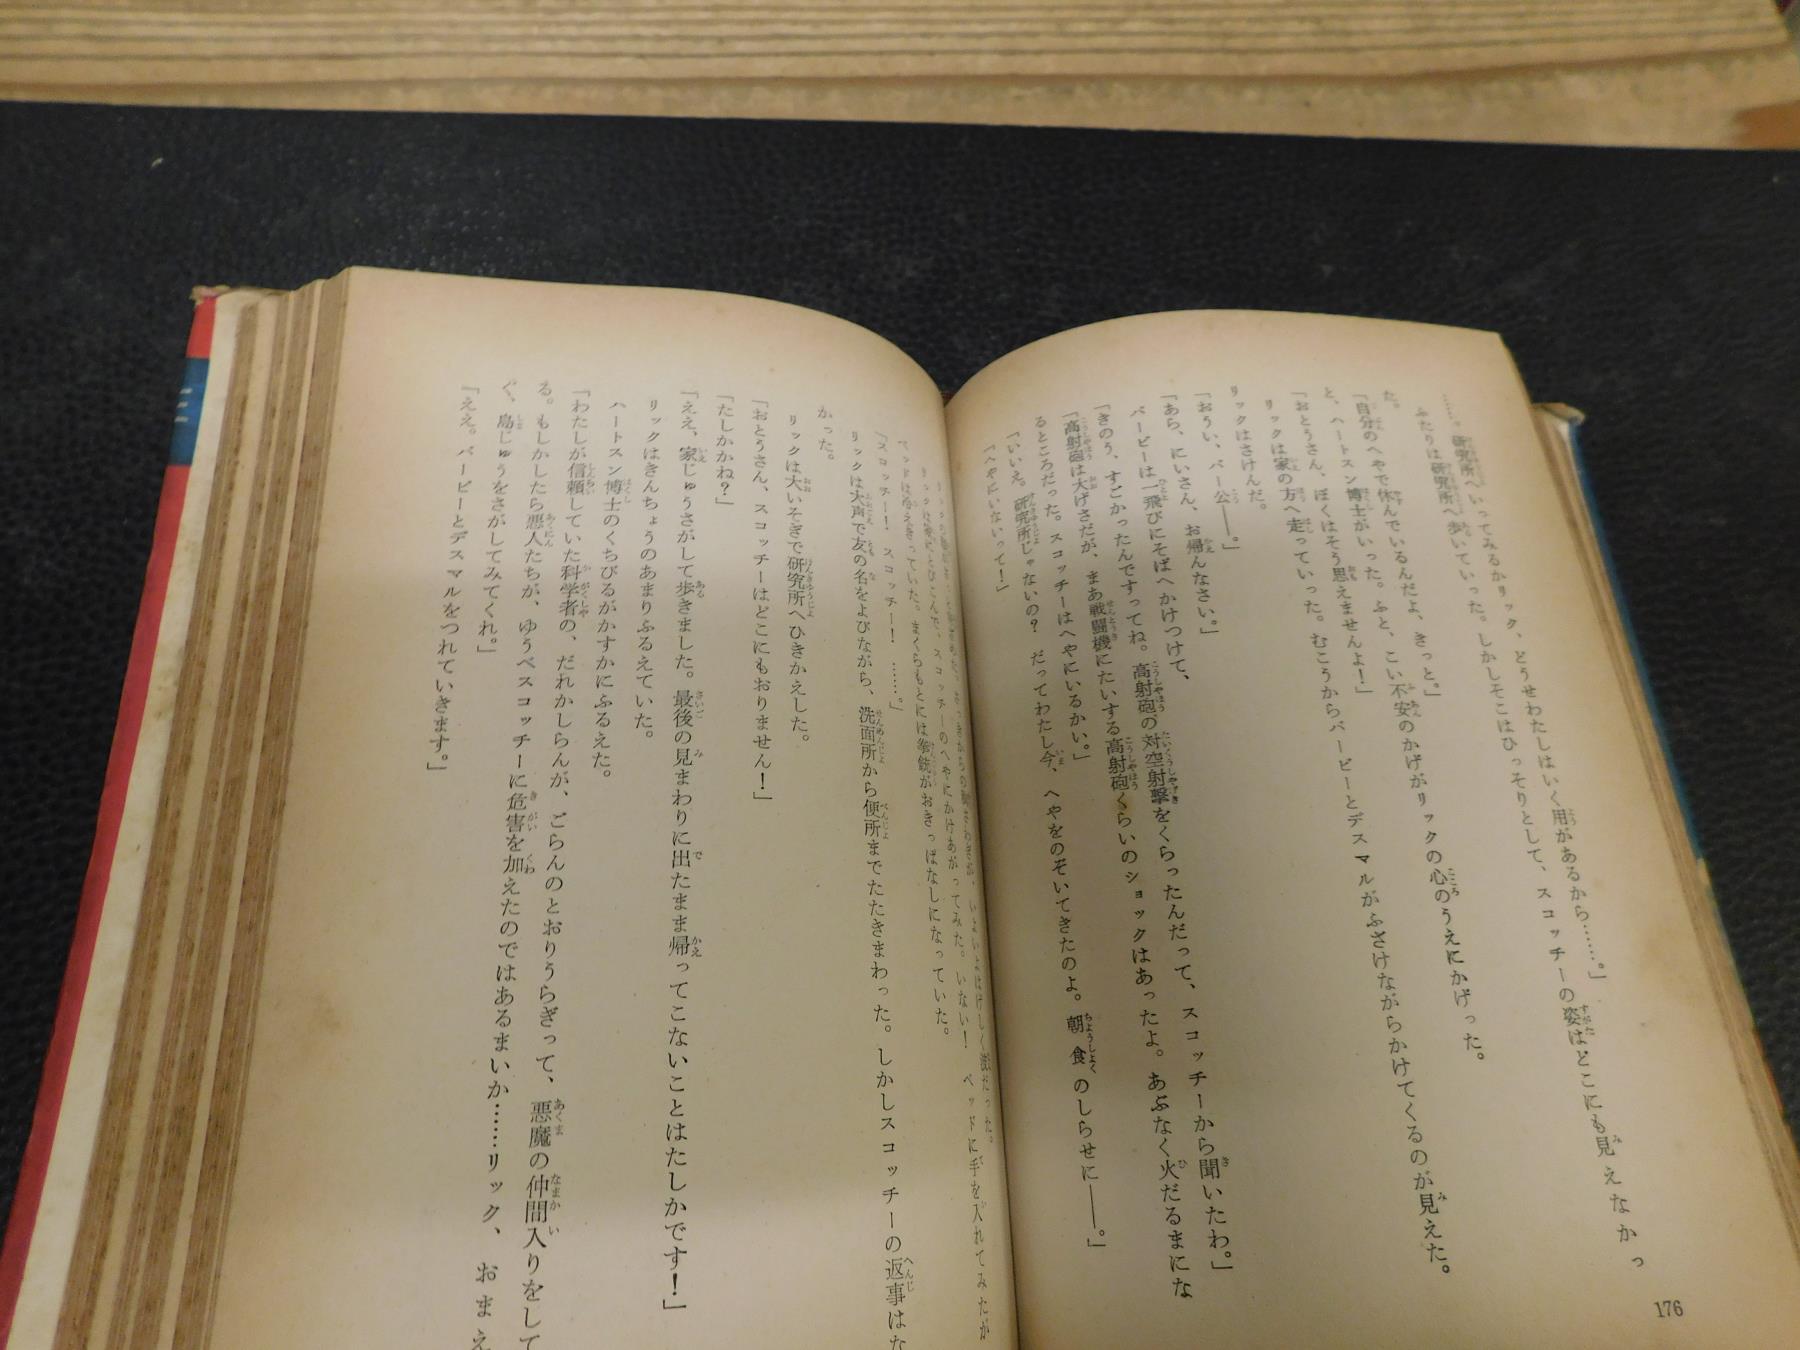 研究所へいってみるかリック、どうせわたしはいく用があるから……。」
ふたりは研究所へ歩いていった。しかしそこはひっそりとして、スコッチーの姿はどこにも見えなかっ
た。
「自分のへやで休んでいるんだよ、きっと。」
と、ハートスン博士がいった。ふと、こい不安のかげがリックの心のうえにかげった。
「おとうさん、ぼくはそう思えませんよ!」
リックは家の方へ走っていった。むこうからバービーとデスマルがふざけながらかけてくるのが見えた。
リックはさけんだ。
「おうい、バー公――。」
「あら、にいさん、お帰んなさい。」
バービーは一飛びにそばへかけつけて、
「きのう、すごかったんですってね。高射砲の対空射撃をくらったんだって、スコッチーから聞いたわ。」
「高射砲は大げさだが、まあ戦闘機にたいする高射砲くらいのショックはあったよ。あぶなく火だるまにな
るところだった。スコッチーはへやにいるかい。」
「いいえ。研究所じゃないの? だってわたし今、へやをのぞいてきたのよ。朝食のしらせに――。」
「へやにいないって!」
リックは家にとびこんで、スコッチーのへやにかけあがってみた。いない! ベッドに手を入れてみたが
ベッドは冷えきっていた。まくらもとには拳銃がおきっぱなしになっていた。
「スコッチー! スコッチー! ……。」
リックは大声で友の名をよびながら、洗面所から便所までたたきまわった。しかしスコッチーの返事はな
かった。
リックは大いそぎで研究所へひきかえした。
「おとうさん、スコッチーはどこにもおりません!」
「たしかかね?」
「ええ、家じゅうさがして歩きました。最後の見まわりに出たまま帰ってこないことはたしかです!」
リックはきんちょうのあまりふるえていた。
ハートスン博士のくちびるがかすかにふるえた。
「わたしが信頼していた科学者の、だれかしらんが、ごらんのとおりうらぎって、悪魔の仲間入りをして
る。もしかしたら悪人たちが、ゆうべスコッチーに危害を加えたのではあるまいか……リック、おまえ
ぐ、島じゅうをさがしてみてくれ。」
「ええ。バービーとデスマルをつれていきます。」
176